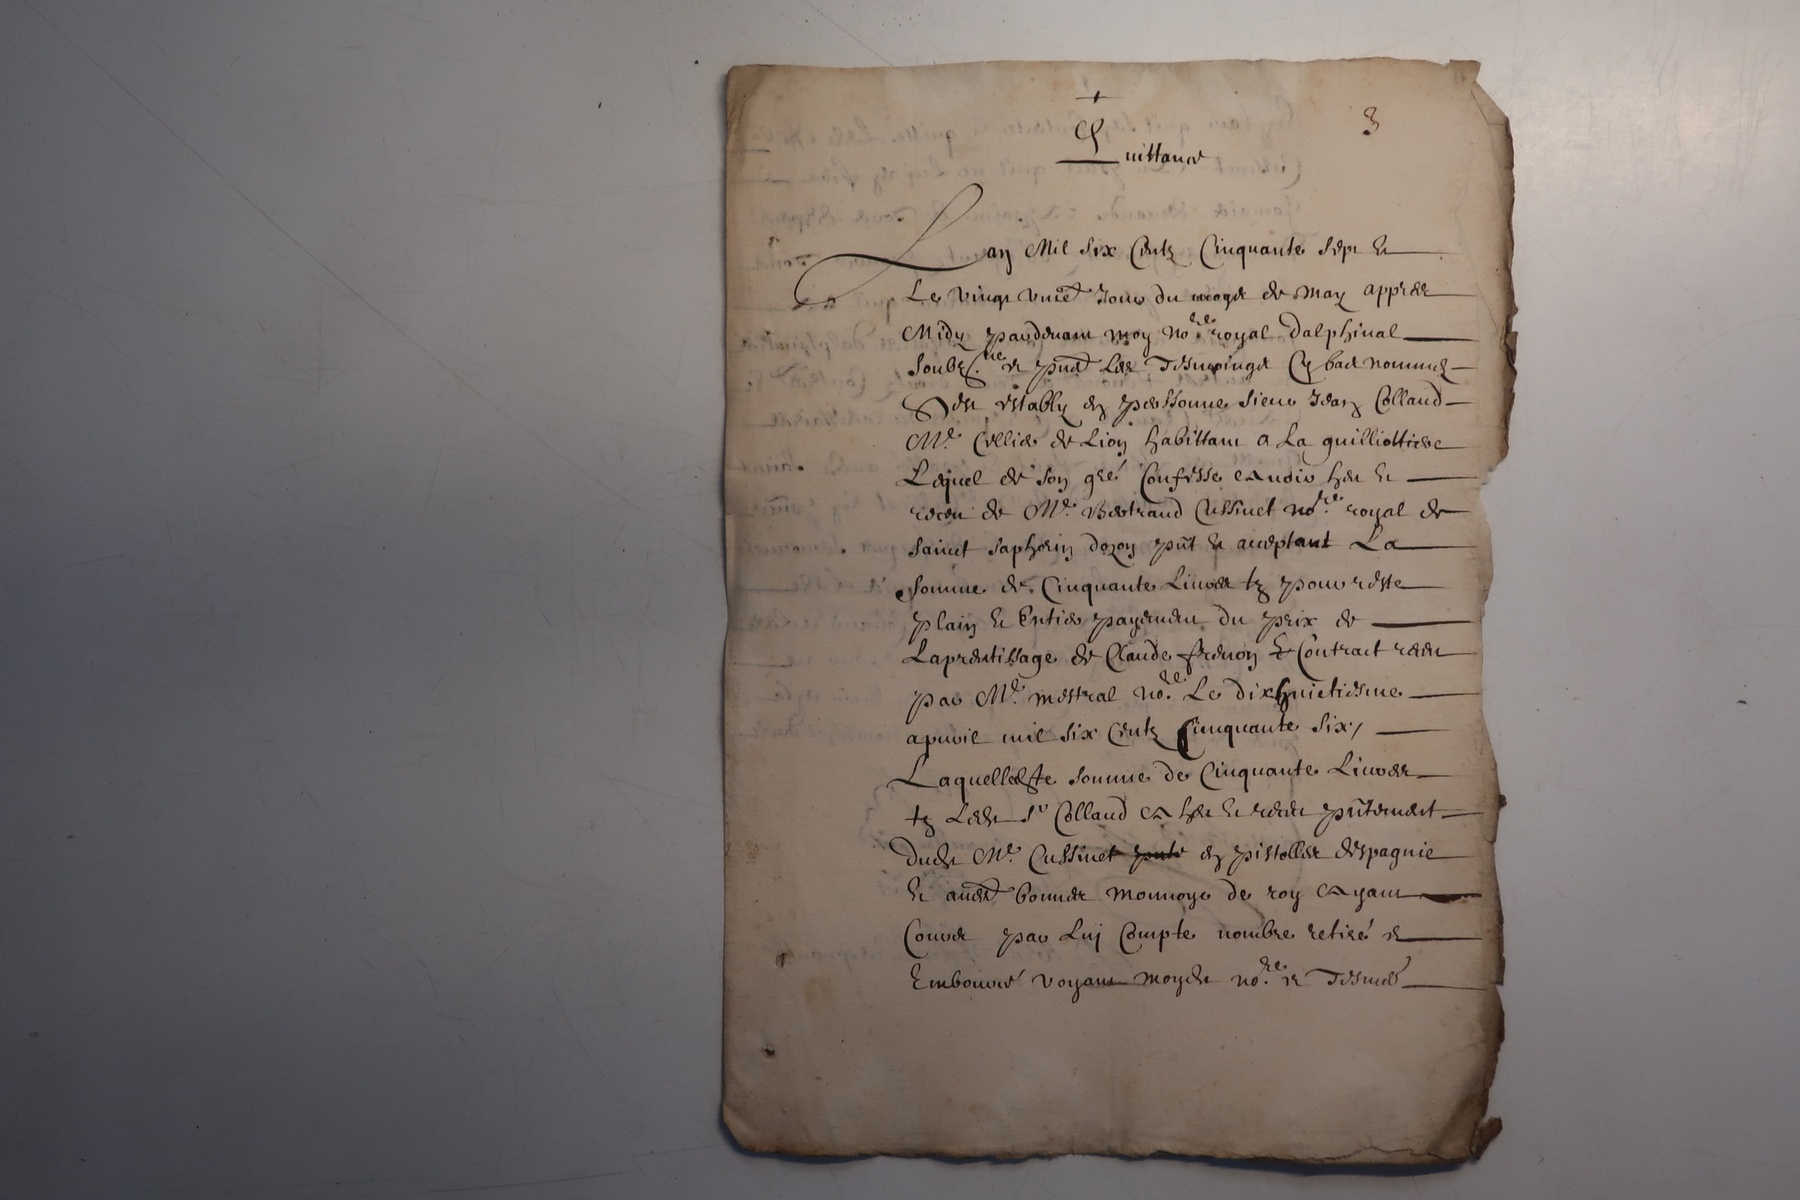 +
3
Quittance
Lan Mil six Centz Cinquante sept et
Le vingt unie jour du moys de May appres
Midy pardevant moy no.re royal dalphinal
soubz.ne et pnt Les Tesmoingz Cy bas nommez
Sest estably en personne sieur Jean Colland
M.e Cellier de Lion habittant a La guilliottiere
Lequel de son gré Confesse avoir heu et
receu de M.e Bertrand Cussinet no.re royal de
saint saphorin dozon pnt et aceptant La
somme de Cinquante Livres tz pour reste
plain et Entier payement du prix de
Laprentissage de Claude frenon Contract receu
par M.e mestral no.re Le dixhuictiesme
apvril mil six Centz Cinquante six /
Laquelle somme de Cinquante Livres
tz Ledit s.r Colland a heu et receu pntement
dudit M.e Cussinet en pistolles despagnie
et bonnes monnoye de roy ayant
Cours par Luy Compte nombre retiré et
Embourcé voyant moydit no.re et Tesmes